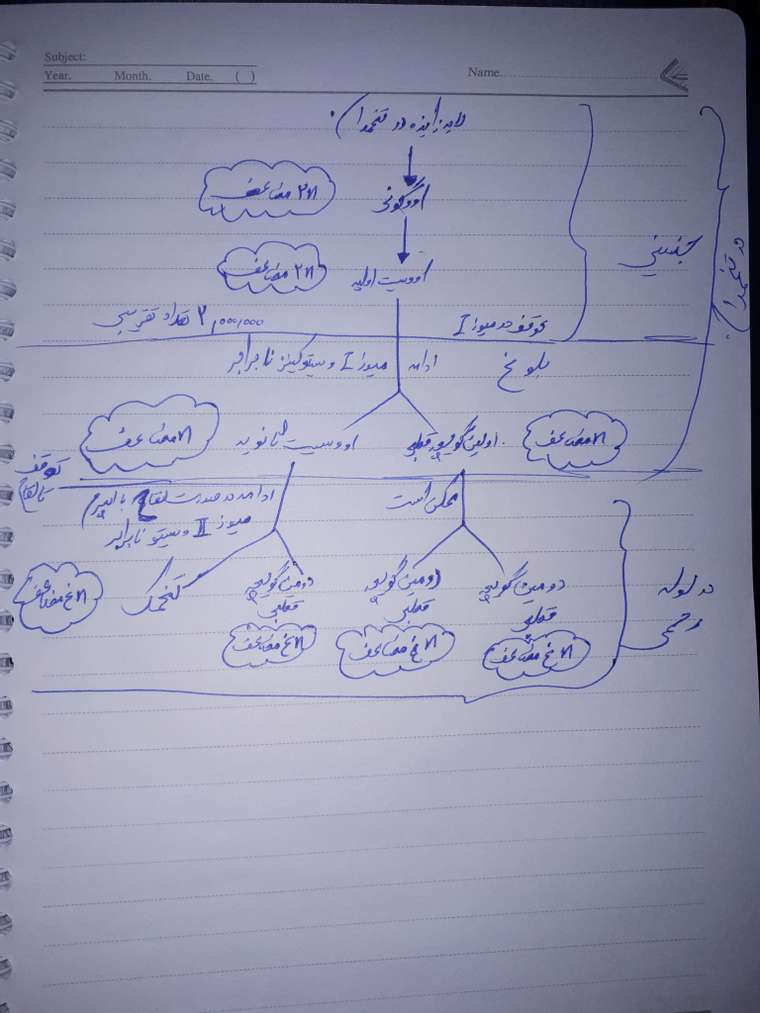 Subject:
Year. Month. Date. ( ) Name.
لایه زاینده در تخمدان
اووگونی
2n مضاعف
اووسیت اولیه
2n مضاعف
توقف در میوز I
۲,۰۰۰,۰۰۰ تعداد تقریبی
جنینی
در تخمدان
بلوغ
ادامه میوز I و سیتوکینز نابرابر
n مضاعف
اولین گویچه قطبی
اووسیت ثانویه
n مضاعف
توقف تا لقاح
ممکن است
ادامه در صورت لقاح با اسپرم
میوز II و سیتو نابرابر
دومین گویچه قطبی
n غ مضاعف
دومین گویچه قطبی
n غ مضاعف
دومین گویچه قطبی
n غ مضاعف
تخمک
n غ مضاعف
در لوله
رحمی